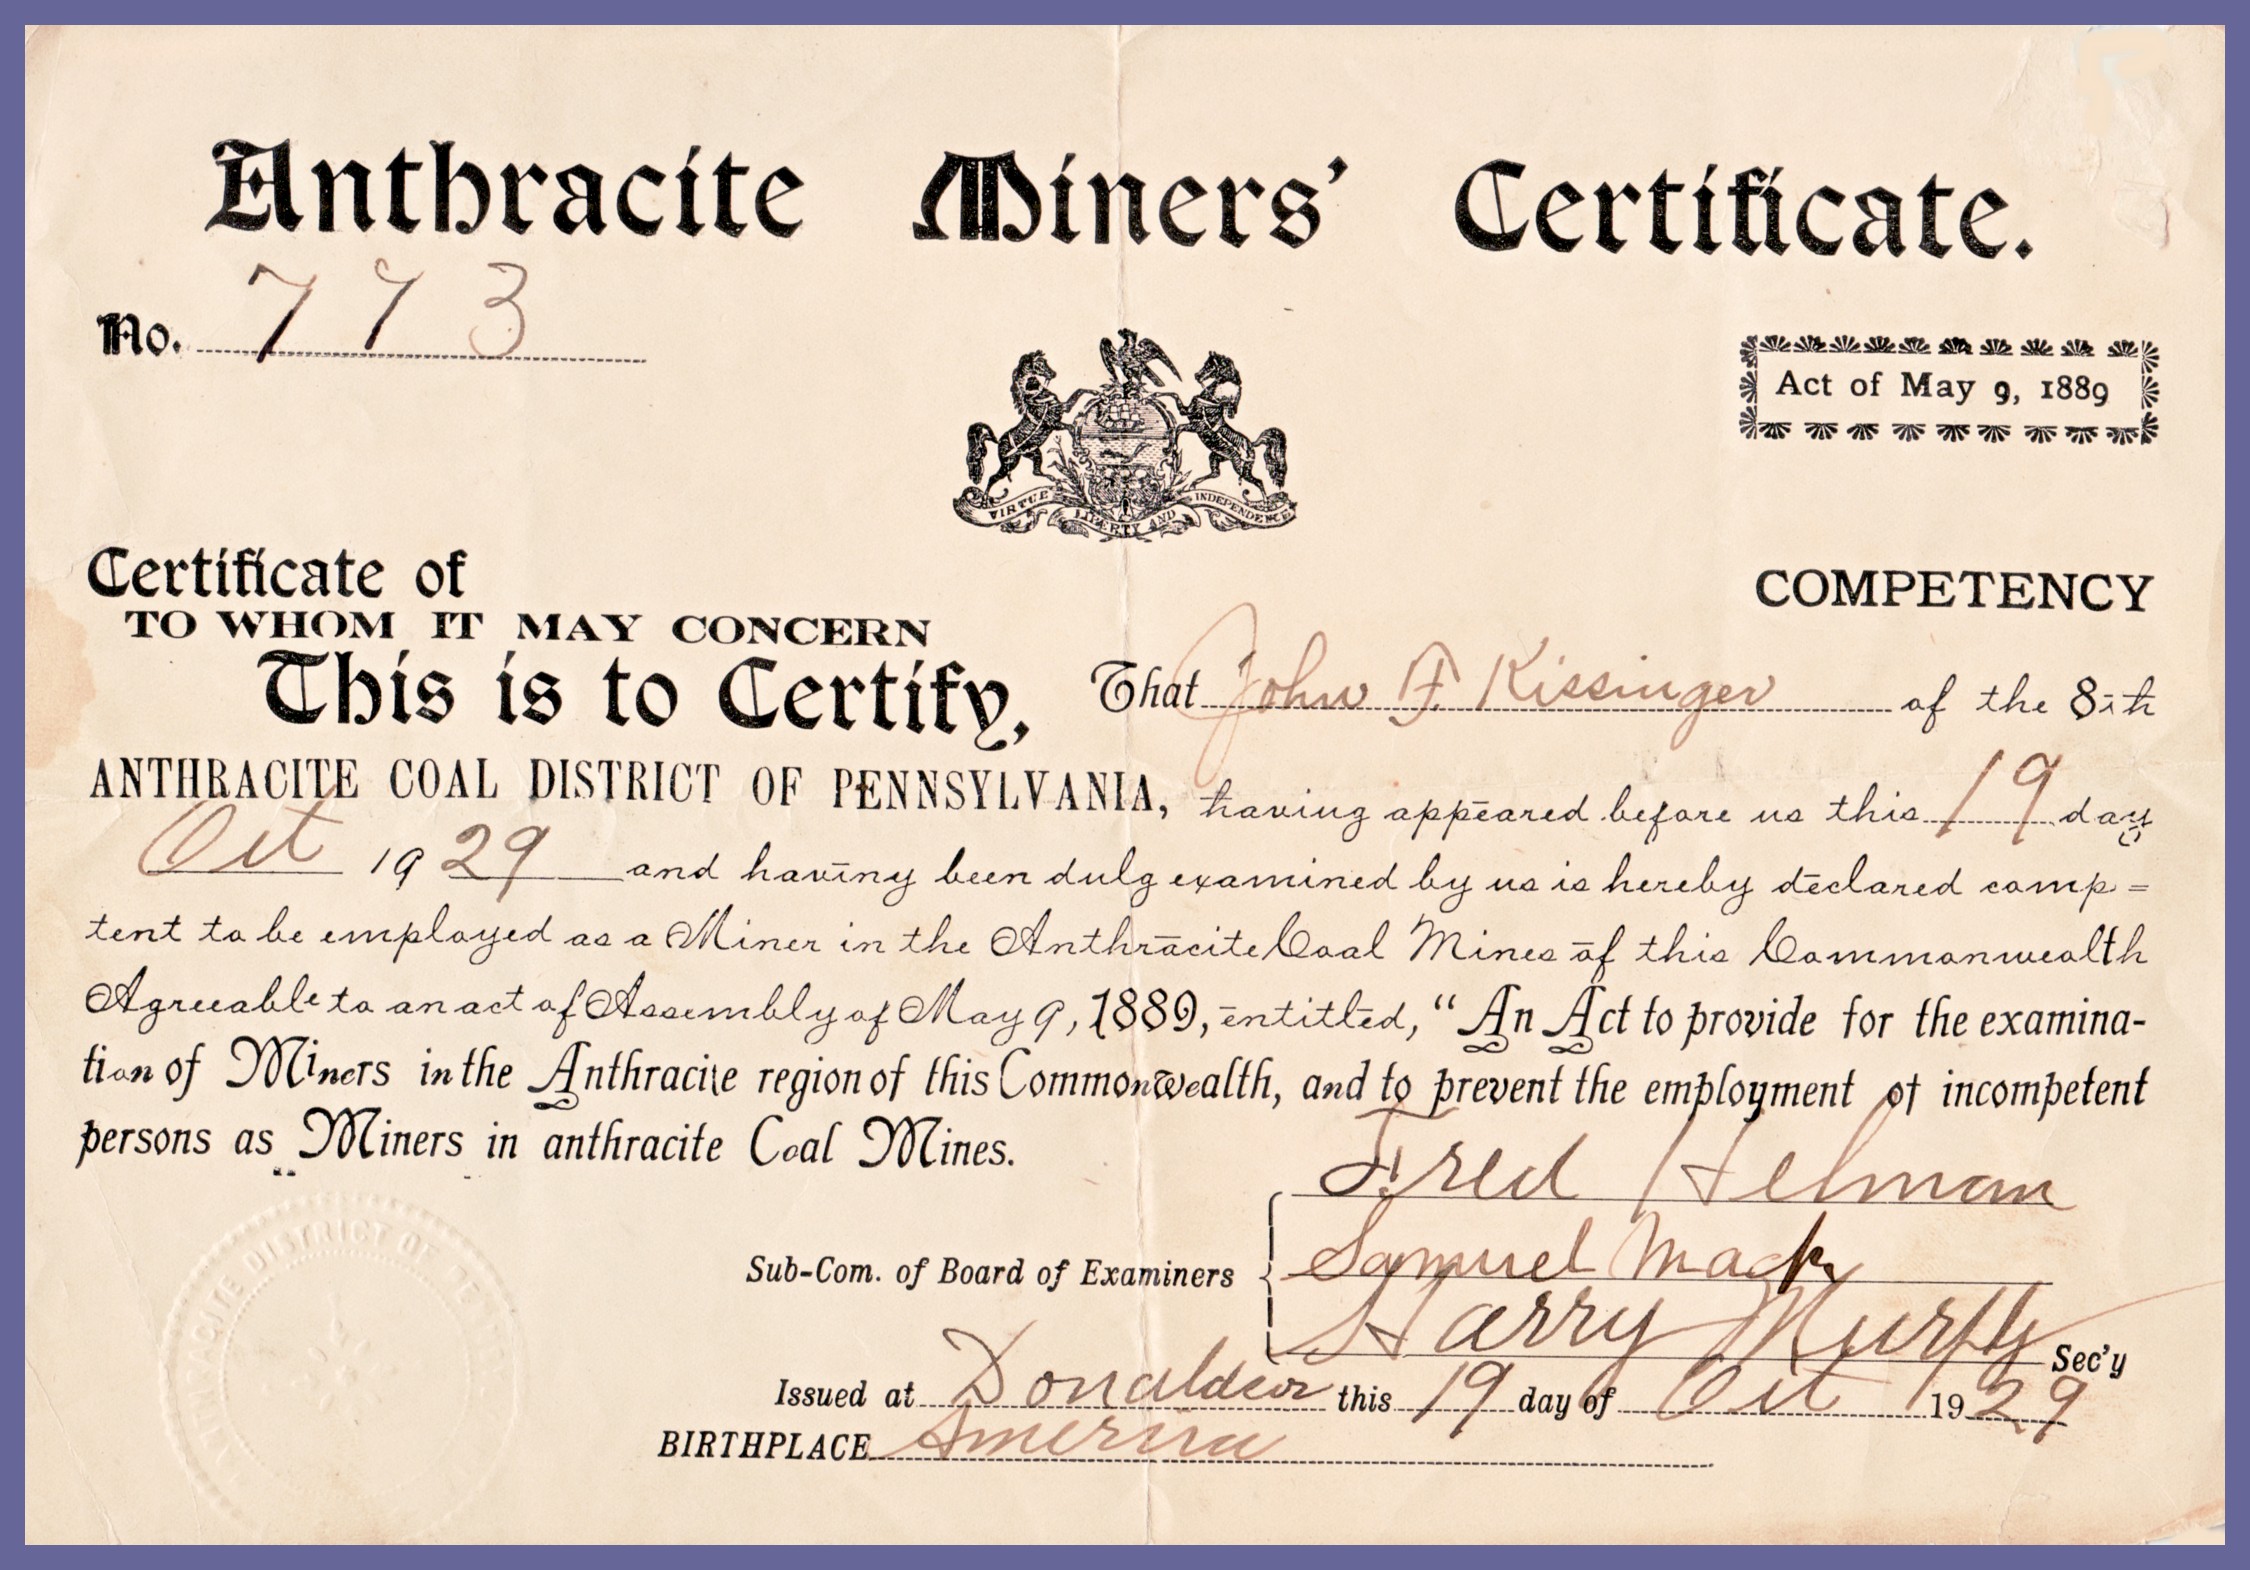 Anthracite Miners' Certificate.
No. 773
Act of May 9, 1889
VIRTUE LIBERTY AND INDEPENDENCE
Certificate of COMPETENCY
TO WHOM IT MAY CONCERN
This is to Certify, That John F. Kissinger of the 8th
ANTHRACITE COAL DISTRICT OF PENNSYLVANIA, having appeared before us this 19 day
Oct 1929 and having been duly examined by us is hereby declared comp=
tent to be employed as a Miner in the Anthracite Coal Mines of this Commonwealth
Agreeable to an act of Assembly of May 9, 1889, entitled, "An Act to provide for the examina-
tion of Miners in the Anthracite region of this Commonwealth, and to prevent the employment of incompetent
persons as Miners in anthracite Coal Mines.
Fred Helman
Sub-Com. of Board of Examiners Samuel Mack
Harry Murfy Sec'y
Issued at Donaldson this 19 day of Oct 1929
BIRTHPLACE America
DISTRICT OF